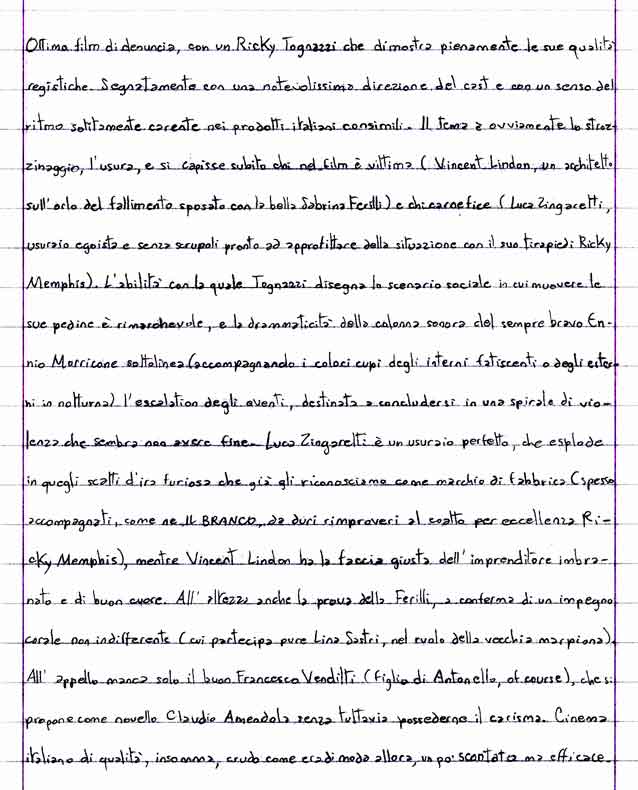 Ottimo film di denuncia, con un Ricky Tognazzi che dimostra pienamente le sue qualità
registiche. Segnatamente con una notevolissima direzione del cast e con un senso del
ritmo solitamente carente nei prodotti italiani consimili. Il tema è ovviamente lo stroz-
zinaggio, l'usura, e si capisse subito chi nel film è vittima (Vincent Lindon, un architetto
sull'orlo del fallimento sposato con la bella Sabrina Ferilli) e chi carnefice (Luca Zingaretti,
usuraio egoista e senza scrupoli pronto ad approfittare della situazione con il suo tirapiedi Ricky
Memphis). L'abilità con la quale Tognazzi disegna lo scenario sociale in cui muovere le
sue pedine è rimarchevole, e la drammaticità della colonna sonora del sempre bravo En-
nio Morricone sottolinea (accompagnando i colori cupi degli interni fatiscenti o degli ester-
ni in notturna) l'escalation degli eventi, destinata a concludersi in una spirale di vio-
lenza che sembra non avere fine. Luca Zingaretti è un usuraio perfetto, che esplode
in quegli scatti d'ira furiosa che già gli riconosciamo come marchio di fabbrica (spesso
accompagnati, come ne IL BRANCO, da duri rimproveri al coatto per eccellenza Ri-
cky Memphis), mentre Vincent Lindon ha la faccia giusta dell'imprenditore imbra-
nato e di buon cuore. All'altezza anche la prova della Ferilli, a conferma di un impegno
corale non indifferente (cui partecipa pure Lina Sastri, nel ruolo della vecchia marpiona).
All'appello manca solo il buon Francesco Venditti (figlio di Antonello, of course), che si
propone come novello Claudio Amendola senza tuttavia possederne il carisma. Cinema
italiano di qualità, insomma, crudo come era di moda allora, un po' scontato ma efficace.